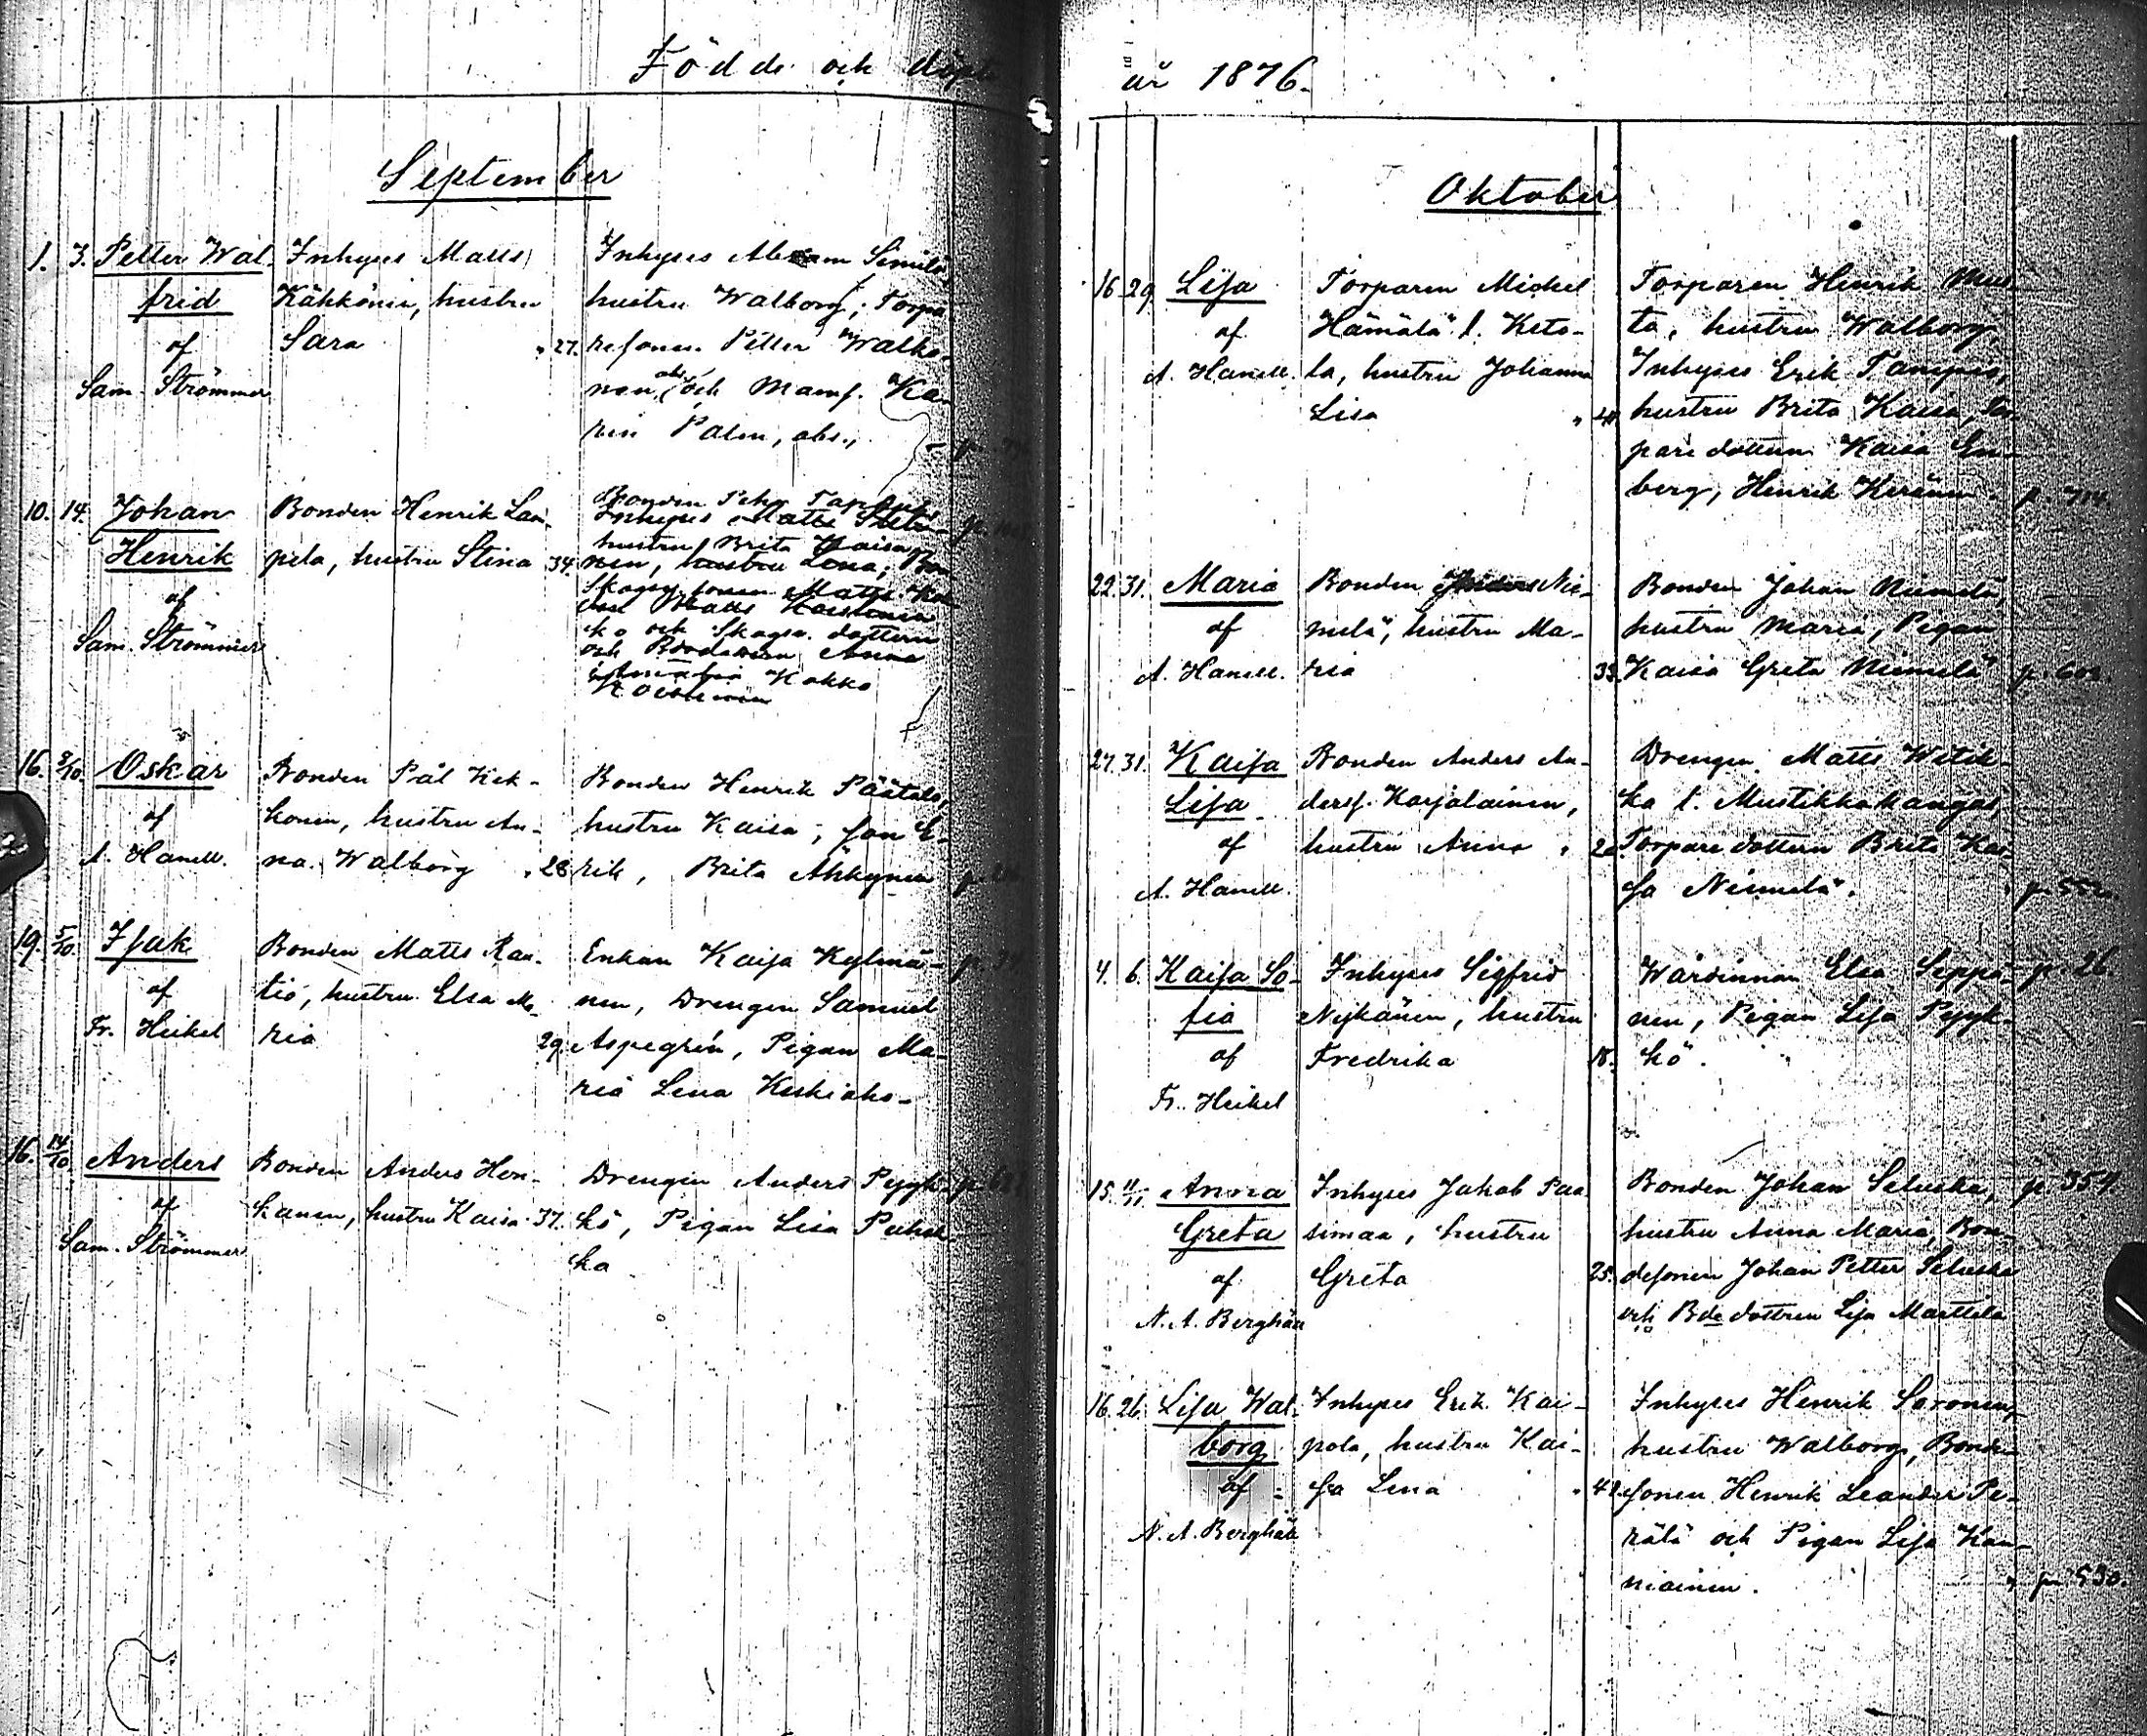 Födde och döpte
år 1876.
September
1. 3. Petter Wal-
frid
af
Sam. Strömmer
Inhyses Matts
Kähkönen, hustru
Sara 27.
Inhyses Abram Simila,
hustru Walborg; Torpa
resonen Petter Walko-
nen, abs. och Mamf. Ka-
rin Palm, abs.,
10. 14. Johan
Henrik
af
Sam. Strömmer
Bonden Henrik Lam-
pela, hustru Stina 34.
Bonden Pehr
Inhyses Matts
hustru Brita Kaisa
nen, hustru Lena;
Skogv. sonen Matts
Matts
ko och Skogv. dottern
och Anna
Kokko
16. 2/10. Oskar
af
A. Hanell.
Bonden Pål Kek-
konen, hustru An-
na Walborg 28
Bonden Henrik Päätalo,
hustru Kaisa; son E-
rik, Brita Ähkynen
19. 5/10. Isak
af
Fr. Heikel
Bonden Matts Rau-
tio, hustru Elsa Ma-
ria 29.
Enkan Kaisa Kylmä-
nen, Drengen Samuel
Aspegrén, Pigan Ma-
ria Lena Keskiaho-
16. 14/10. Anders
af
Sam. Strömmer
Bonden Anders Hon-
kanen, hustru Kaisa 37.
Drengen Anders Pyyk-
kö, Pigan Lisa Puhak-
ka
Oktober
16 29 Lisa
af
A. Hanell.
Torparen Mickel
Hämälä l. Keto-
la, hustru Johanna
Lisa
Torparen Henrik Mus-
ta, hustru Walborg,
Inhyses Erik Tampio,
hustru Brita Kaisa, Tor-
pare dottern Kaisa En-
berg, Henrik Keränen. p. 714.
22. 31. Maria
af
A. Hanell.
Bonden Nie-
melä, hustru Ma-
ria 33.
Bonden Johan Niemelä,
hustru Maria, Pigan
Kaisa Greta Niemelä
27. 31. Kaisa
Lisa
af
A. Hanell.
Bonden Anders An-
dersf. Karjalainen,
hustru Anna
Drengen Matts Witik-
ka l. Mustikkakangas,
Torpare dottern Brita Kai-
sa Niemelä. p. 552.
4. 6. Kaisa So-
fia
af
Fr. Heikel
Inhyses Sigfrid
Nykänen, hustru
Fredrika 18.
Wärdinnan Elsa Seppä- p. 26
nen, Pigan Lisa Pyyk-
kö.
15. 11/11 Anna
Greta
af
N. A. Berghäll
Inhyses Jakob Paa
simaa, hustru
Greta 25.
Bonden Johan Seluska, p. 354
hustru Anna Maria, Bon-
desonen Johan Petter Seluska
och Bde dottren Lisa Marttila
16. 26. Lisa Wal-
borg
af
N. A. Berghäll
Inhyses Erik Kai-
pola, hustru Kai-
sa Lena 42.
Inhyses Henrik Soronen,
hustru Walborg, Bonde
sonen Henrik Leander Pe-
rälä och Pigan Lisa Kau-
niainen. p. 530.